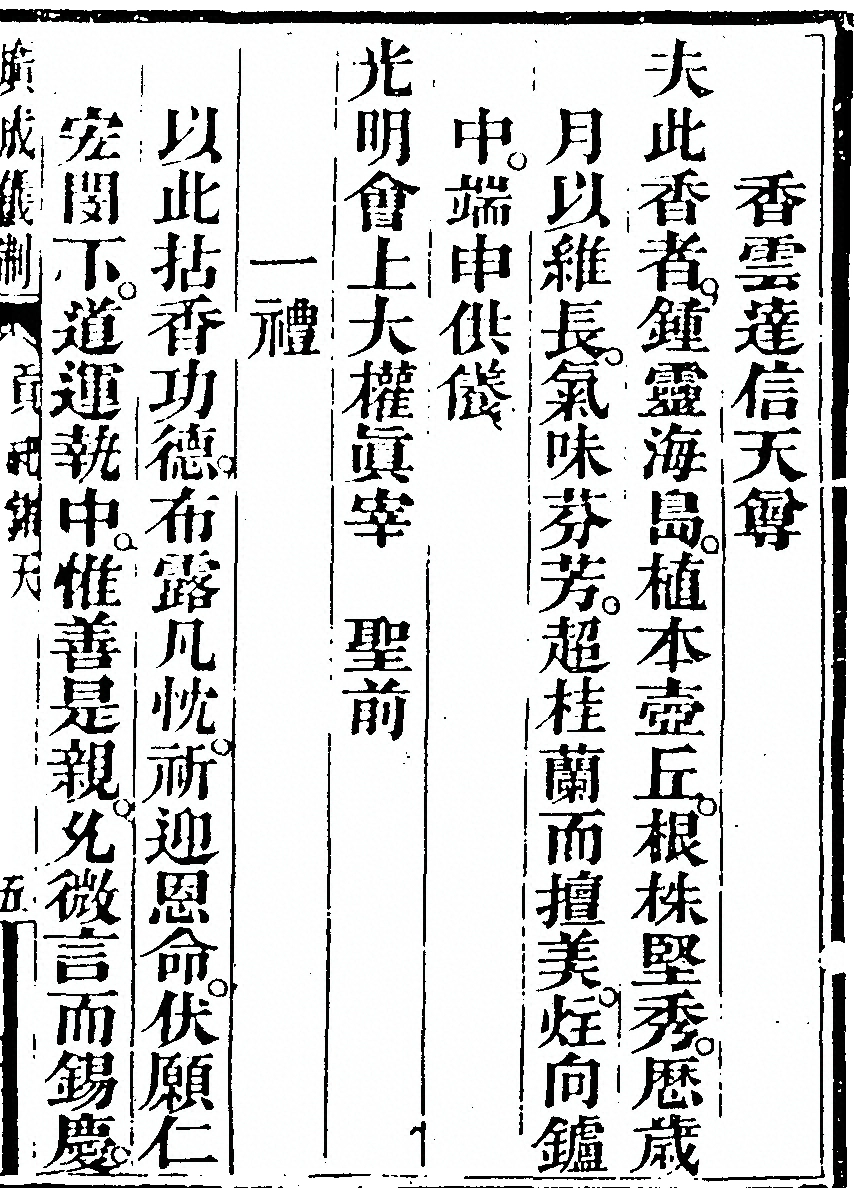 香雲達信天尊
夫此香者。鍾靈海島。植本壺丘。根株堅秀。歷歲
月以維長。氣味芬芳。超桂蘭而擅美。炷向鑪
中。端申供養
光明會上大權眞宰　聖前
一禮
以此拈香功德。布露凡忱。祈迎恩命。伏願仁
宏閔下。道運執中。惟善是親。允微言而錫慶。
廣成儀制　貢祀諸天　五